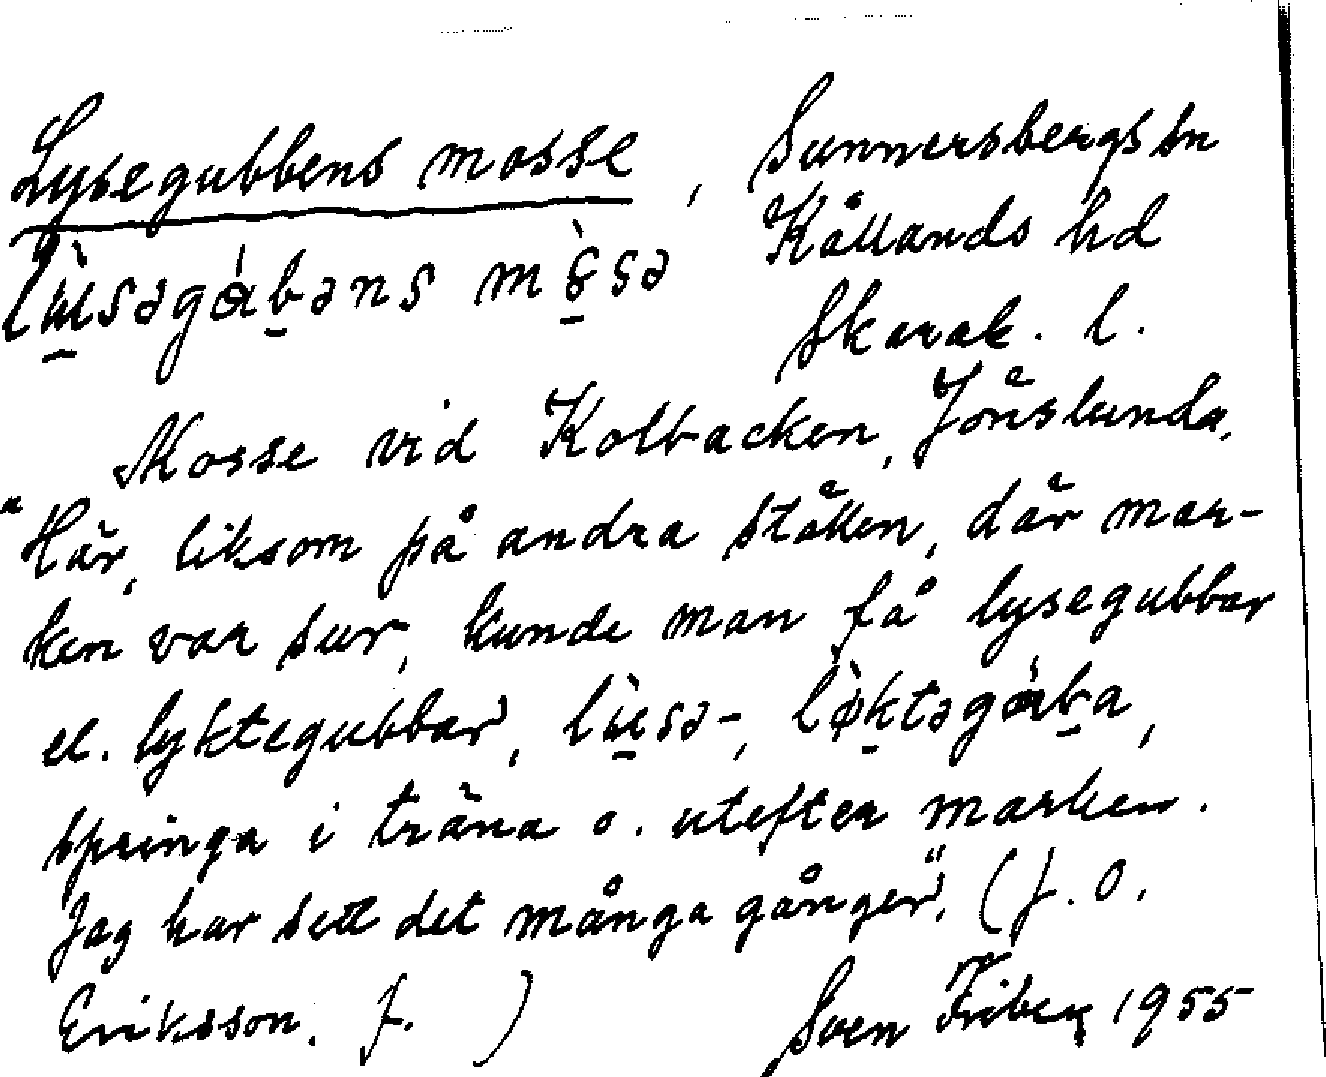 Lysegubbens mosse, Sunnersbergs sn
Kållands hd
Skarab. l.
Mosse vid Kolbacken, Jönslunda.
"Här, liksom på andra ställen, där mar-
ken var sur, kunde man få lysegubbar
el. lyktegubbar,
springa i träna o. utefter marken.
Jag har sett det många gånger". (J. O.
Eriksson. f. )
Sven Friberg 1955